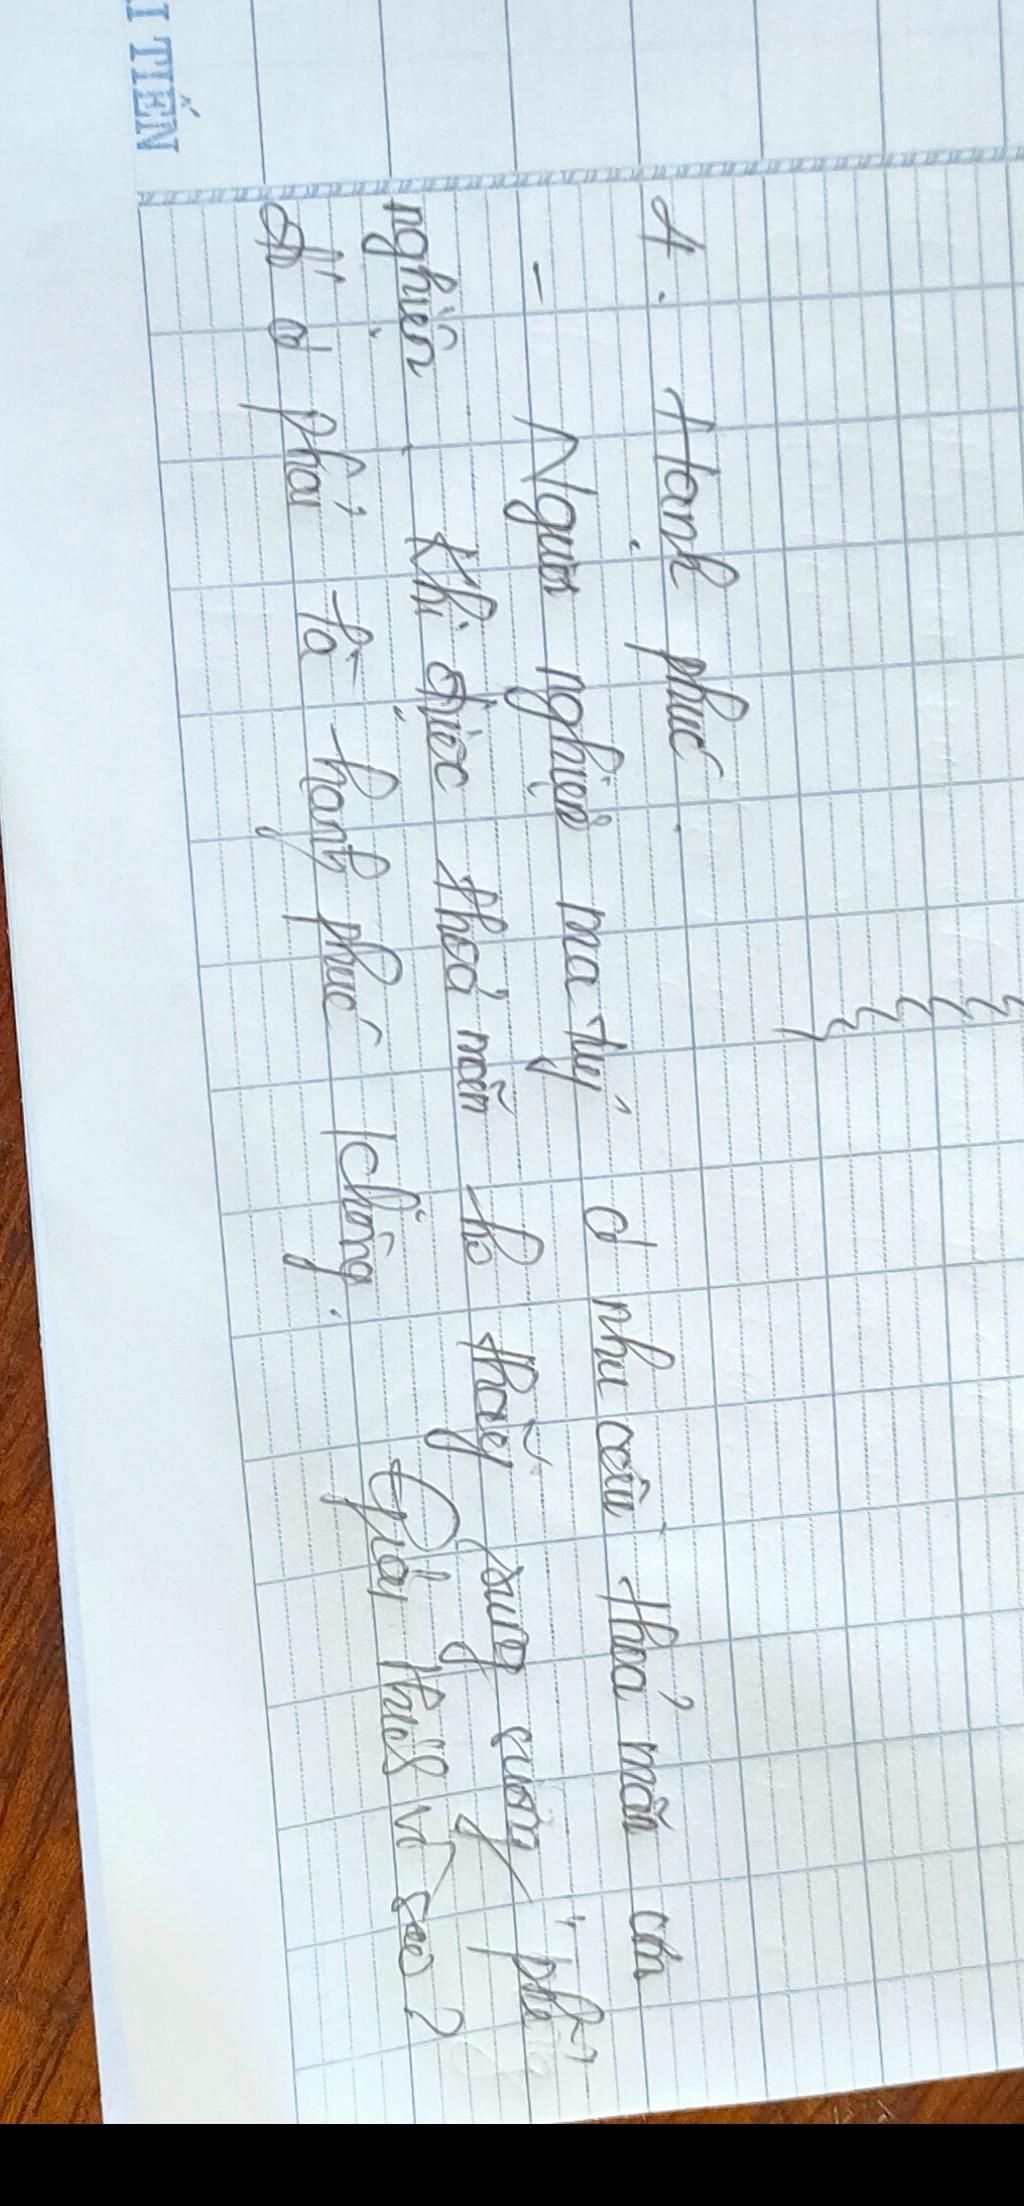 I TIẾN
4. Hạnh phúc.
- Người nghiện ma tuý có nhu cầu thoả mãn cơn
nghiện. Khi được thoả mãn họ thấy sung sướng "phê"
đó có phải là hạnh phúc không. Giải thích vì sao?